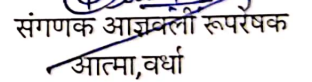 संगणक आज्ञावली रूपरेषक
आत्मा,वर्धा